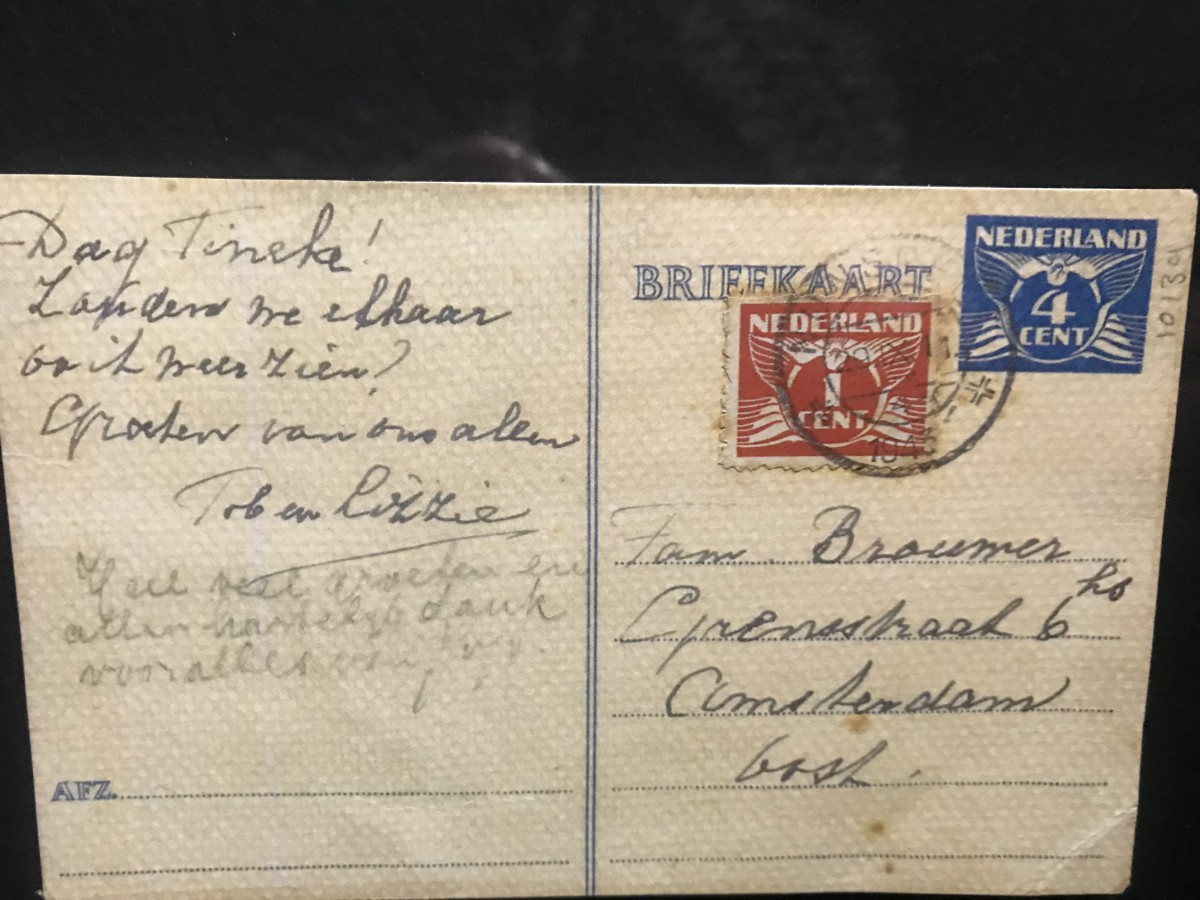 Dag Tineke!
Zouden we elkaar
ooit weer zien?
Groeten van ons allen
Tob en Lizzie
Heel veel groeten en
allen hartelijk dank
voor alles van
AFZ.
BRIEFKAART
NEDERLAND
4
CENT
NEDERLAND
1
CENT
1943
10139
Fam. Brouwer
Grensstraat 6 hs
Amsterdam
Oost.